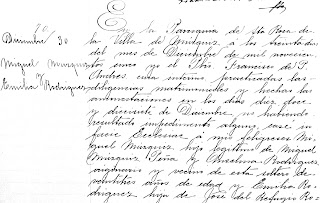 70
Diciembre/30
Miguel Murquiz
y
Emilia Rodriguez
En la Parroquia de Sta Rosa de
la Villa de Muzquiz á los treinta días
del mes de Diciembre de mil novecien
tos once yo el Pbro. Francisco de P.
Andres cura interino practicadas las
diligencias matrimoniales y hechas las
amonestaciones en los días diez, doce
y diecisiete de Diciembre, no habiendo
resultado impedimento alguno, casé in
facie Ecclesiae á mis feligreses Mi
guel Múzquiz hijo legítimo de Miguel
Múzquiz Peña y Anselma Rodriguez,
originario y vecino de esta soltero de
veintitrés años de edad y Emilia Ro
driguez hija de José del Refugio Ro